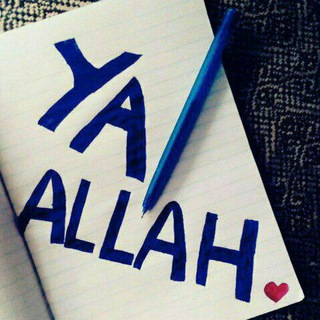 YA
ALLAH